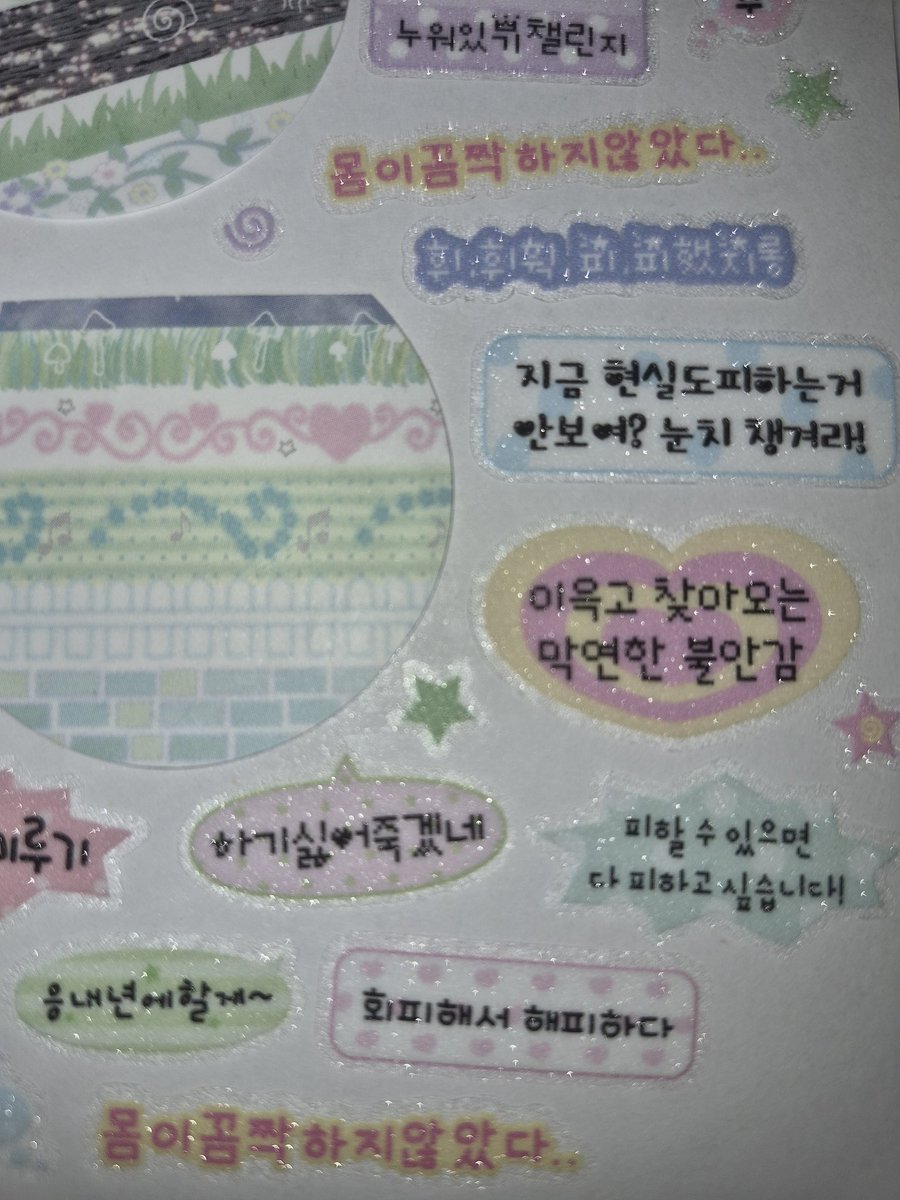 누워있긔챌린지
몸이꼼짝하지않았다..
지금 현실도피하는거
안보여? 눈치 챙겨래!
이윽고 찾아오는
막연한 불안감
미루기
하기싫어죽겠네
피할 수 있으면
다 피하고 싶습니다!
응내년에할게~
회피해서 해피하다
몸이꼼짝하지않았다..